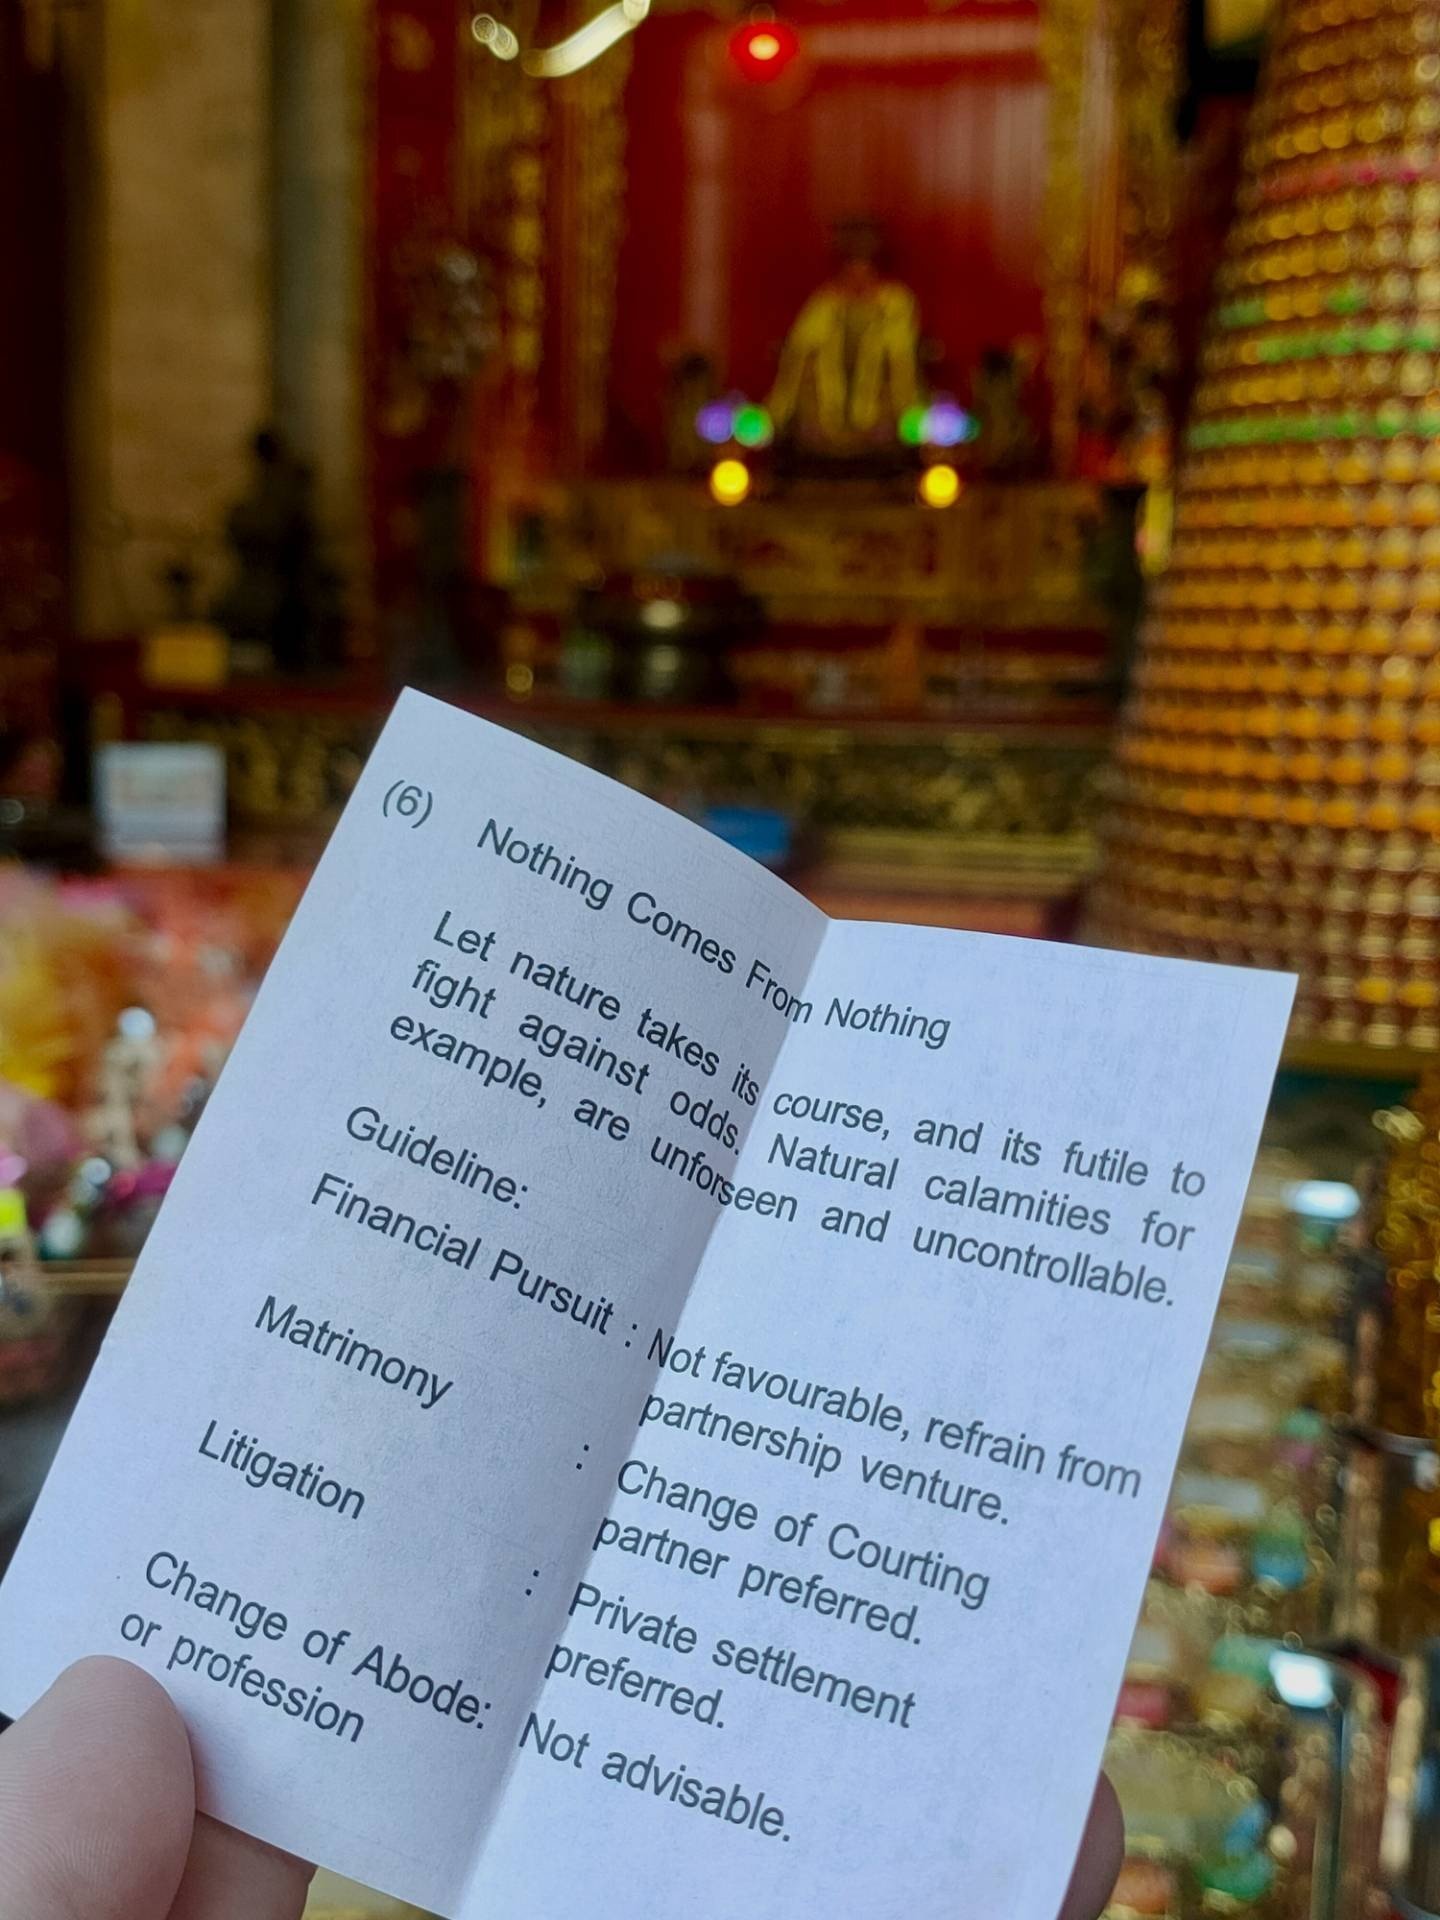 (6) Nothing Comes From Nothing
Let nature takes its course, and its futile to
fight against odds. Natural calamities for
example, are unforseen and uncontrollable.
Guideline:
Financial Pursuit : Not favourable, refrain from
partnership venture.
Matrimony : Change of Courting
partner preferred.
Litigation : Private settlement
preferred.
Change of Abode: Not advisable.
or profession